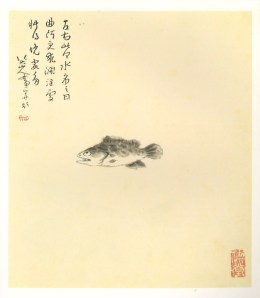 左右此何水名之曰
曲阿更求淵注處
料得晚霞多
八大山人